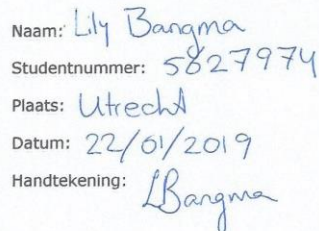 Naam: Lily Bangma
Studentnummer: 5827974
Plaats: Utrecht
Datum: 22/01/2019
Handtekening: LBangma